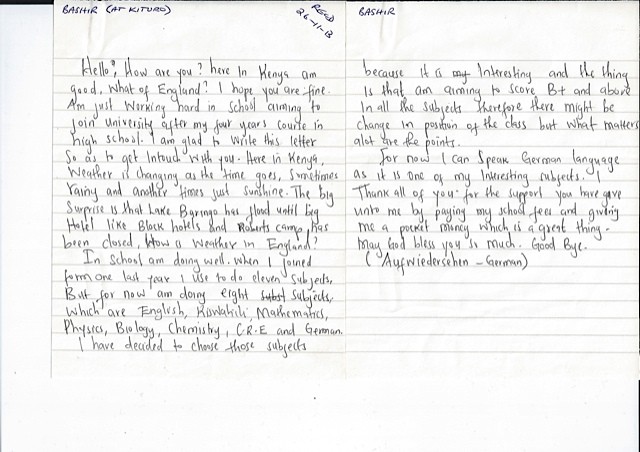 BASHIR (AT KITURO)
RECD
26-11-13
Hello?, How are you? here In Kenya am
good. What of England? I hope you are fine.
Am just working hard in school aiming to
join university after my four years course in
high school. I am glad to write this letter
So as to get Intouch with you. Here in Kenya,
Weather is changing as the time goes, Sometimes
rainy and another times just sunshine. The big
Surprise is that Lake Baringo has flood until big
Hotel like Block hotels and Roberts camp, has
been closed, How is Weather in England?
In School am doing well. When I joined
form one last year I use to do eleven Subjects.
But for now am doing eight subst Subjects.
Which are English, Kiswahili, Mathematics,
Physics, Biology, Chemistry, C.R.E and German.
I have decided to choose those subjects
BASHIR
because it is my Interesting and the thing
Is that am aiming to score B+ and above
In all the Subjects therefore there might be
change in position of the class but what matters
alot are the points.
For now I can Speak German language
as it is one of my Interesting subjects. I
Thank all of you for the support you have give
unto me by paying my school fees and giving
me a pocket money which is a great thing.
May God bless you so much. Good Bye.
(Aufwiedersehen - German)